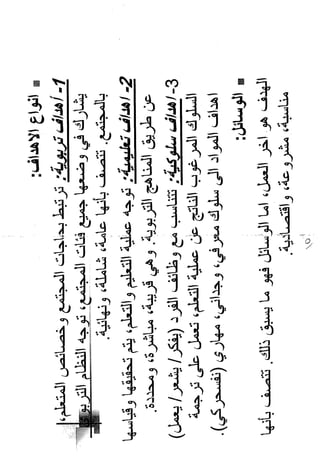 ▪ انواع الاهداف:
1-/هداف تربوية: ترتبط بحاجات المجتمع وخصائص المتعلم،
يشارك في وضعها جميع فئات المجتمع، توجه النظام التربوي
بالمجتمع. تتصف بأنها عامة، شاملة، ونهائية.
2-/هداف تعليمية: توجه عملية التعليم والتعلم، يتم تحقيقها وقياسها
عن طريق المناهج التربوية. وهي قريبة، مباشرة، ومحددة.
3-/هداف سلوكية: تتناسب مع وظائف الفرد (يفكر/ يشعر/ يعمل)
السلوك المرغوب الناتج عن عملية التعلم، تعمل على ترجمة
اهداف المواد الى سلوك معرفي، وجداني، مهاري (نفسحركي).
▪ الوسائل:
الهدف هو اخر العمل، اما الوسائل فهو ما يسبق ذلك. تتصف بأنها
مناسبة، مشروعة، واقتصادية.